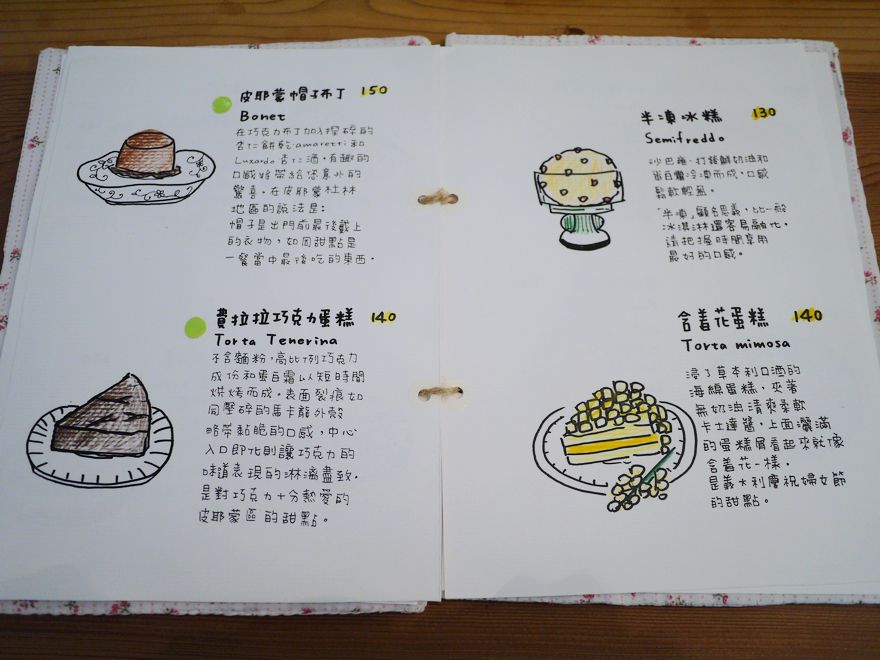 皮耶蒙帽子布丁 150
Bonet
在巧克力布丁加入捏碎的
杏仁餅乾amaretti和
Luxardo杏仁酒,有趣的
口感將帶給您意外的
驚喜。在皮耶蒙杜林
地區的說法是:
帽子是出門前最後戴上
的衣物,如同甜點是
一餐當中最後吃的東西。
費拉拉巧克力蛋糕 140
Torta Tenerina
不含麵粉,高比例巧克力
成份和蛋白霜以短時間
烘烤而成。表面裂痕如
同壓碎的馬卡龍外殼
略帶黏脆的口感,中心
入口即化則讓巧克力的
味道表現的淋漓盡致。
是對巧克力十分熱愛的
皮耶蒙區的甜點。
半凍冰糕 130
Semifreddo
沙巴雍、打發鮮奶油和
蛋白霜冷凍而成,口感
鬆軟輕盈。
"半凍"顧名思義,比一般
冰淇淋還容易融化,
請把握時間享用
最好的口感。
含羞花蛋糕 140
Torta mimosa
浸了草本利口酒的
海綿蛋糕,夾著
無奶油清爽柔軟
卡士達醬,上面灑滿
的蛋糕屑看起來就像
含羞花一樣。
是義大利慶祝婦女節
的甜點。